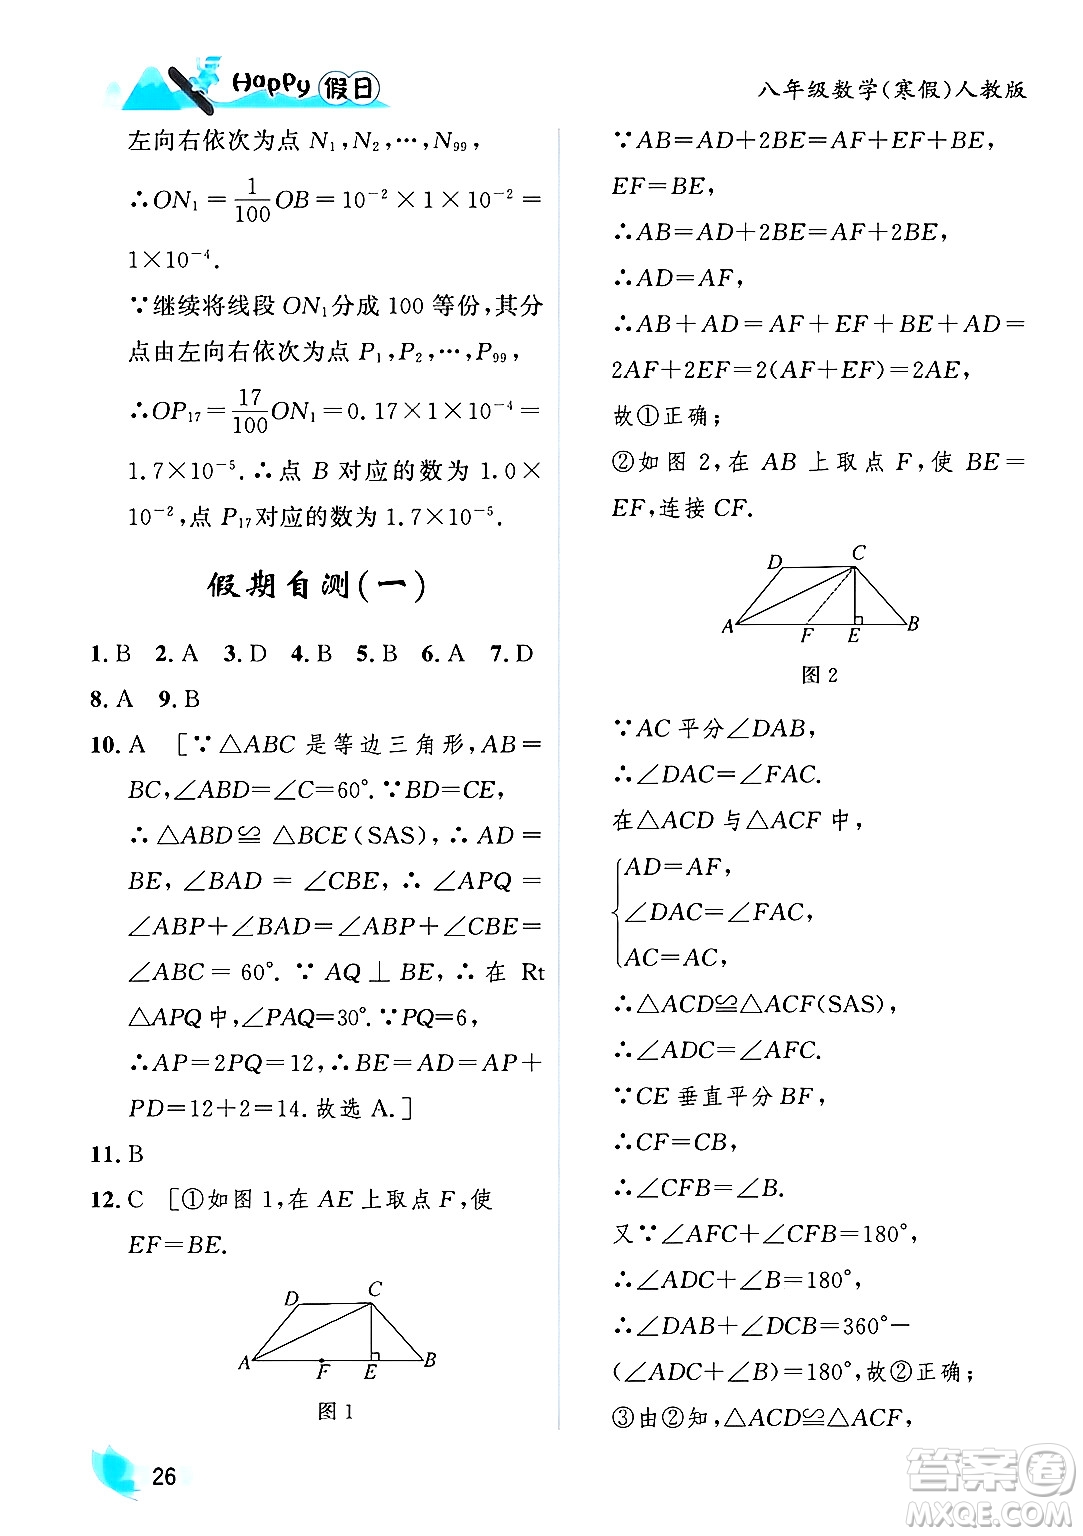 Happy 假日
八年级数学(寒假)人教版
左向右依次为点 N₁,N₂,…,N₉₉,
∴ON₁=1/100 OB=10⁻²×1×10⁻²=
1×10⁻⁴.
∵继续将线段 ON₁分成 100 等份,其分
点由左向右依次为点 P₁,P₂,…,P₉₉,
∴OP₁₇=17/100 ON₁=0.17×1×10⁻⁴=
1.7×10⁻⁵.∴点 B 对应的数为 1.0×
10⁻²,点 P₁₇对应的数为 1.7×10⁻⁵.
假期自测(一)
1. B 2. A 3. D 4. B 5. B 6. A 7. D
8. A 9. B
10. A [∵△ABC 是等边三角形,AB=
BC,∠ABD=∠C=60°.∵BD=CE,
∴△ABD≌△BCE(SAS),∴AD=
BE,∠BAD=∠CBE,∴∠APQ=
∠ABP+∠BAD=∠ABP+∠CBE=
∠ABC=60°.∵AQ⊥BE,∴在 Rt
△APQ 中,∠PAQ=30°.∵PQ=6,
∴AP=2PQ=12,∴BE=AD=AP+
PD=12+2=14.故选 A.]
11. B
12. C [①如图 1,在 AE 上取点 F,使
EF=BE.
D C
A F E B
图 1
∵AB=AD+2BE=AF+EF+BE,
EF=BE,
∴AB=AD+2BE=AF+2BE,
∴AD=AF,
∴AB+AD=AF+EF+BE+AD=
2AF+2EF=2(AF+EF)=2AE,
故①正确;
②如图 2,在 AB 上取点 F,使 BE=
EF,连接 CF.
D C
A F E B
图 2
∵AC 平分∠DAB,
∴∠DAC=∠FAC.
在△ACD 与△ACF 中,
AD=AF,
∠DAC=∠FAC,
AC=AC,
∴△ACD≌△ACF(SAS),
∴∠ADC=∠AFC.
∵CE 垂直平分 BF,
∴CF=CB,
∴∠CFB=∠B.
又∵∠AFC+∠CFB=180°,
∴∠ADC+∠B=180°,
∴∠DAB+∠DCB=360°−
(∠ADC+∠B)=180°,故②正确;
③由②知,△ACD≌△ACF,
26
答案圈
MXQE.COM